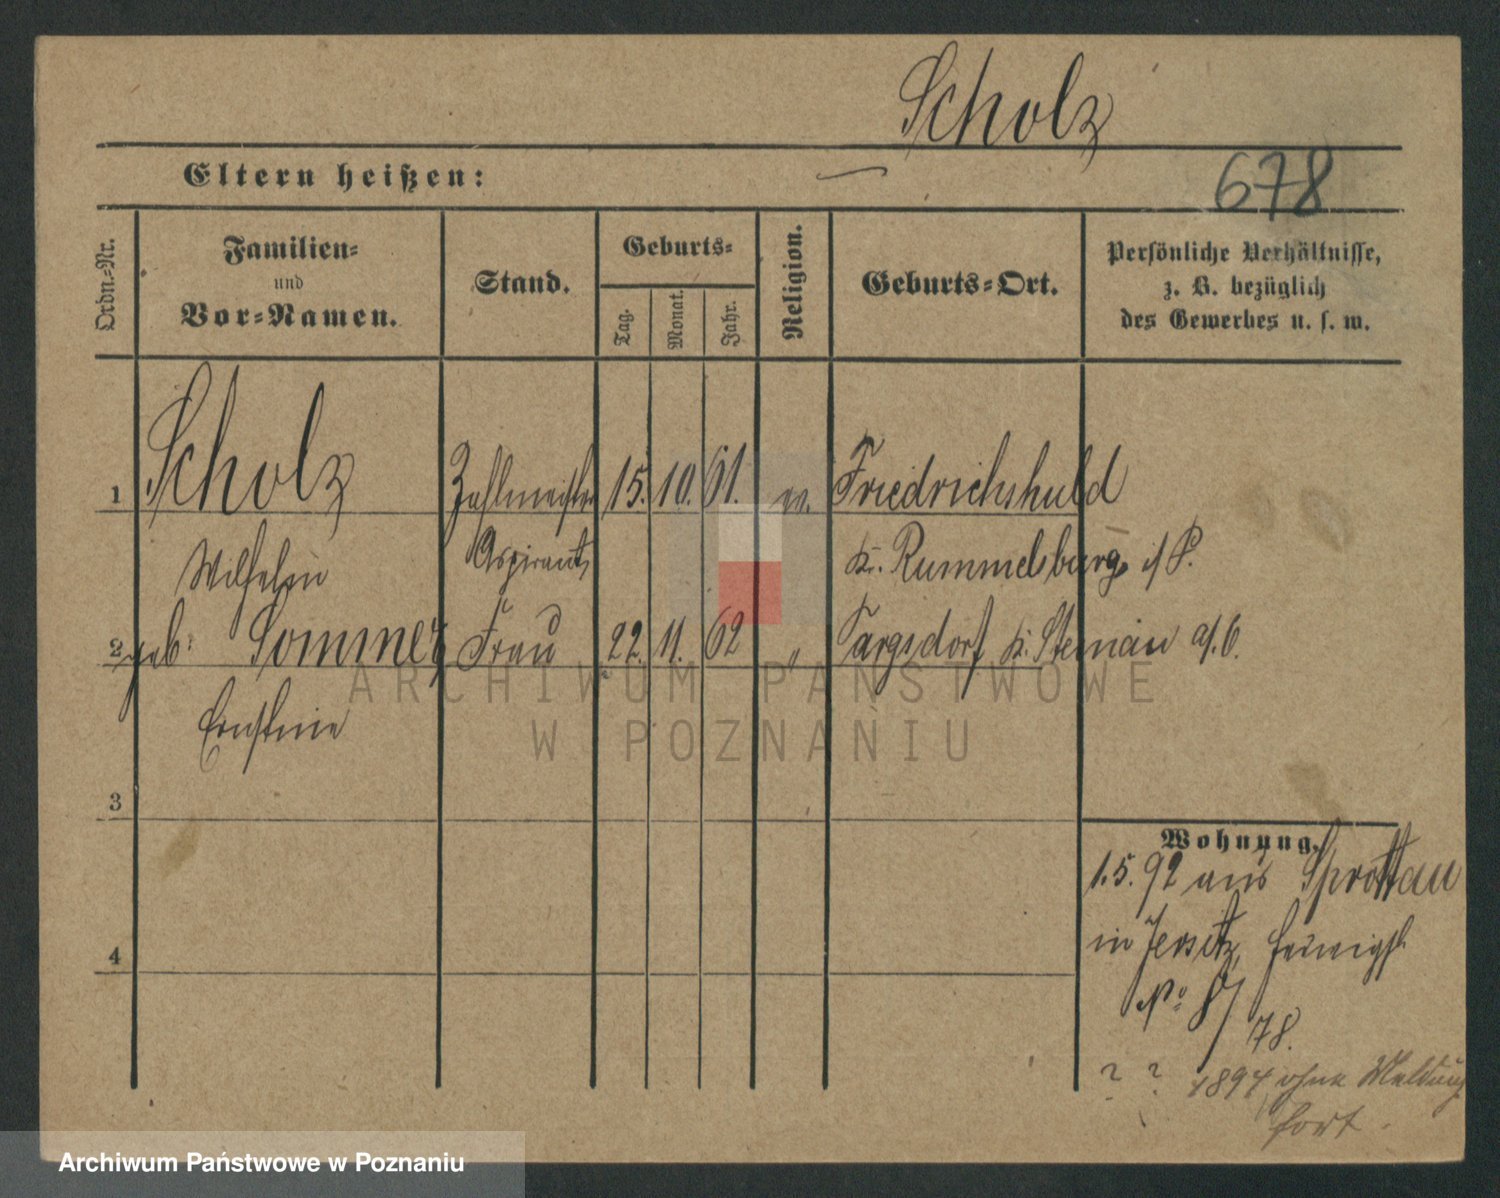 Scholz
Eltern heißen: —
678
Ordn.-Nr.
Familien-
und
Vor-Namen.
Stand.
Geburts-
Tag.
Monat.
Jahr.
Religion.
Geburts-Ort.
Persönliche Verhältnisse,
z. B. bezüglich
des Gewerbes u. s. w.
1 Scholz Zahlmeister 15. 10. 61. ev. Friedrichshuld
Wilhelm Aspirant Kr. Rummelsburg i/P.
2 geb: Sommer Frau 22. 11. 62 " Targsdorf Kr. Steinau a/O.
Ernstine
ARCHIWUM PAŃSTWOWE
W POZNANIU
3
4
Wohnung.
1.5.92 aus Sprottau
in Jersitz,
No 8/
78.
? ? 1894 ohne Meldung
fort.
Archiwum Państwowe w Poznaniu